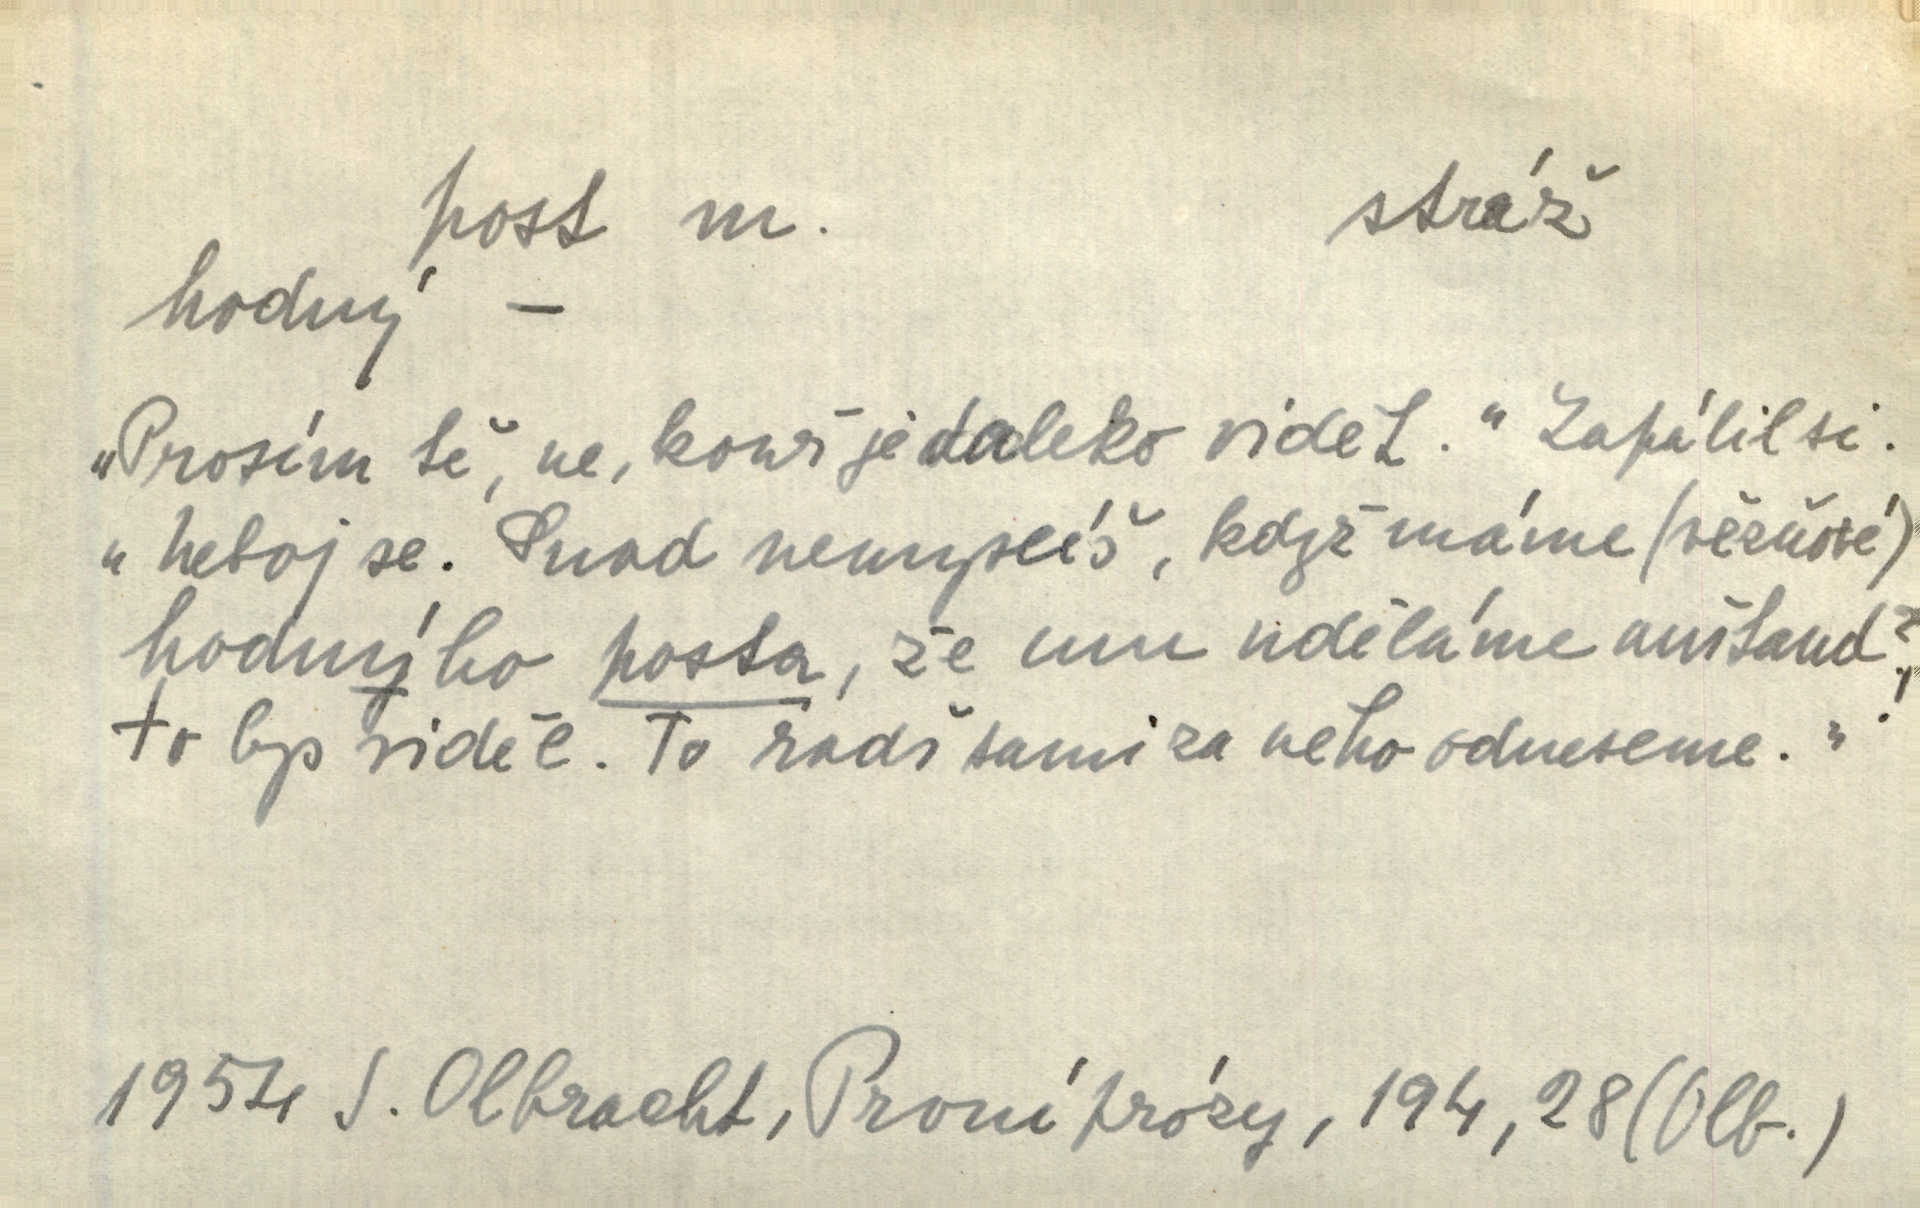 post m. stráž
hodný –
„Prosím tě, ne, kouř je daleko vidět.“ Zapálil si.
„Neboj se. Snad nemyslíš, když máme (vězňové)
hodnýho posta, že mu uděláme anštand?,
to bys viděl. To radš sami za neho odneseme.“
1954 I. Olbracht, První prózy, 194, 28 (Olb.)